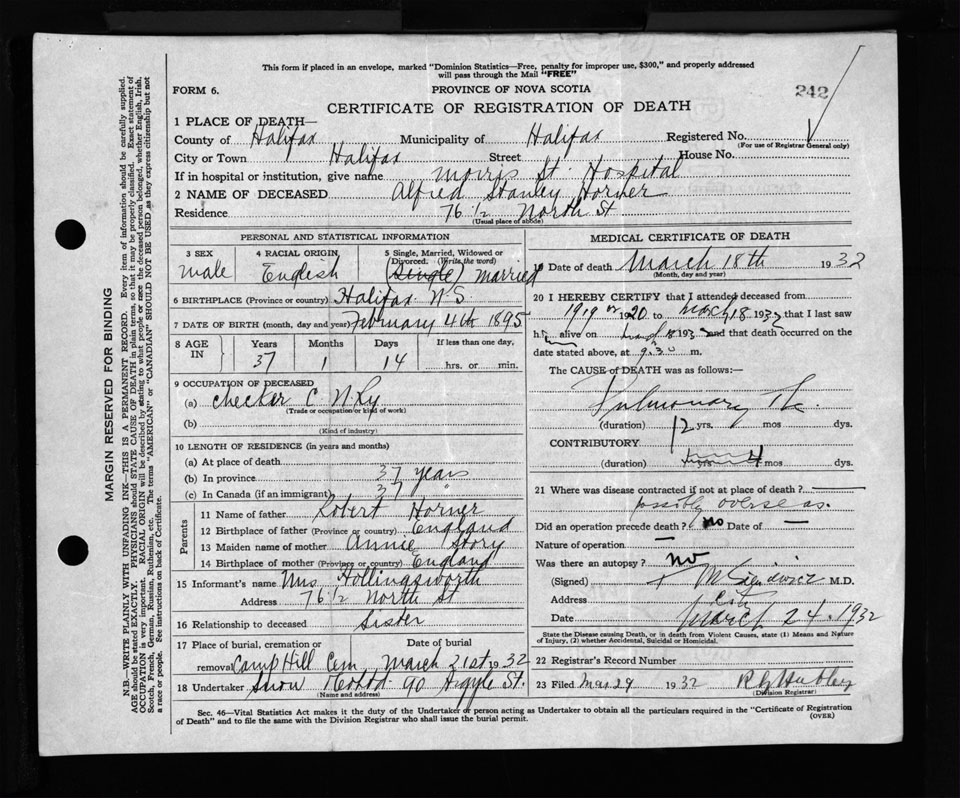 This form if placed in an envelope, marked "Dominion Statistics—Free, penalty for improper use, $300," and properly addressed
will pass through the Mail "FREE"
FORM 6.
PROVINCE OF NOVA SCOTIA
242
CERTIFICATE OF REGISTRATION OF DEATH
1 PLACE OF DEATH—
County of Halifax Municipality of Halifax Registered No.
(For use of Registrar General only)
City or Town Halifax Street House No.
If in hospital or institution, give name Morris St. Hospital
2 NAME OF DECEASED Alfred Stanley Horner
Residence 76 1/2 North St
(Usual place of abode)
PERSONAL AND STATISTICAL INFORMATION
3 SEX
male
4 RACIAL ORIGIN
English
5 Single, Married, Widowed or
Divorced. (Write the word)
(Single) married
6 BIRTHPLACE (Province or country) Halifax N S
7 DATE OF BIRTH (month, day and year) February 4th 1895
8 AGE IN
Years Months Days If less than one day,
37 1 14 hrs. or min.
9 OCCUPATION OF DECEASED
(a) Checker C N Ry
(Trade or occupation or kind of work)
(b)
(Kind of industry)
10 LENGTH OF RESIDENCE (in years and months)
(a) At place of death
(b) In province 37 years
(c) In Canada (if an immigrant) 37 "
Parents
11 Name of father Robert Horner
12 Birthplace of father (Province or country) England
13 Maiden name of mother Annie Story
14 Birthplace of mother (Province or country) England
15 Informant's name Mrs Hollingsworth
Address 76 1/2 North St
16 Relationship to deceased Sister
17 Place of burial, cremation or Date of burial
removal Camp Hill Cem March 21st 1932
18 Undertaker Snow & Co Ltd 90 Argyle St.
(Name and address)
MEDICAL CERTIFICATE OF DEATH
19 Date of death March 18th 1932
(Month, day and year)
20 I HEREBY CERTIFY that I attended deceased from
1919 or 1920 to March 18 1932 that I last saw
him alive on March 18 1932 and that death occurred on the
date stated above, at 9.30 m.
The CAUSE OF DEATH was as follows:—
Pulmonary Tb.
(duration) 12 yrs. mos dys.
CONTRIBUTORY
(duration) mos dys.
21 Where was disease contracted if not at place of death?
possibly overseas.
Did an operation precede death? no Date of —
Nature of operation —
Was there an autopsy? no
(Signed) M.D.
Address City
Date March 24, 1932
State the Disease causing Death, or in death from Violent Causes, state (1) Means and Nature
of Injury, (2) whether Accidental, Suicidal or Homicidal.
22 Registrar's Record Number
23 Filed Mar 29 1932 Hubley
Division Registrar)
Sec. 46—Vital Statistics Act makes it the duty of the Undertaker or person acting as Undertaker to obtain all the particulars required in the "Certificate of Registration
of Death" and to file the same with the Division Registrar who shall issue the burial permit.
(OVER)
MARGIN RESERVED FOR BINDING
N.B.—WRITE PLAINLY WITH UNFADING INK—THIS IS A PERMANENT RECORD. Every item of information should be carefully supplied.
AGE should be stated EXACTLY. PHYSICIANS should STATE CAUSE OF DEATH in plain terms, so that it may be properly classified. Exact statement of
OCCUPATION is very important. RACIAL ORIGIN will be described by stating to what people or race the deceased person belonged, whether English, Irish,
Scotch, French, German, Russian, Ruthenian, etc. The terms "AMERICAN" or "CANADIAN" SHOULD NOT BE USED as they express citizenship but not
a race or people. See instructions on back of Certificate.